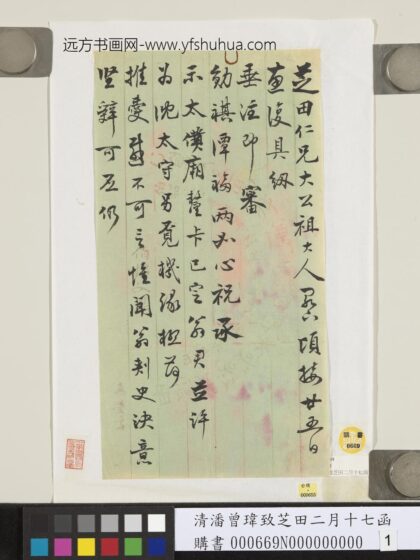 远方书画网-www.yfshuhua.com
芝田仁兄大公祖大人 頃接廿五日
惠復具紉
垂注即審
勛祺潭福兩如心祝承
示太僕廟釐卡已定翁君並許
為沈太守另覓機緣極荷
推愛 不可言惟聞翁刺史決意
堅辭可否仍
購書
0669
000655
清潘曾瑋致芝田二月十七函
購書 000669N000000000 1